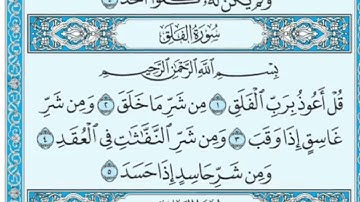 وَلَمْ يَكُن لَّهُۥ كُفُوًا أَحَدٌۢ ٤
سُورَةُ الفَلَقِ
بِسْمِ ٱللَّهِ ٱلرَّحْمَٰنِ ٱلرَّحِيمِ
قُلْ أَعُوذُ بِرَبِّ ٱلْفَلَقِ ١ مِن شَرِّ مَا خَلَقَ ٢ وَمِن شَرِّ
غَاسِقٍ إِذَا وَقَبَ ٣ وَمِن شَرِّ ٱلنَّفَّٰثَٰتِ فِى ٱلْعُقَدِ ٤
وَمِن شَرِّ حَاسِدٍ إِذَا حَسَدَ ٥